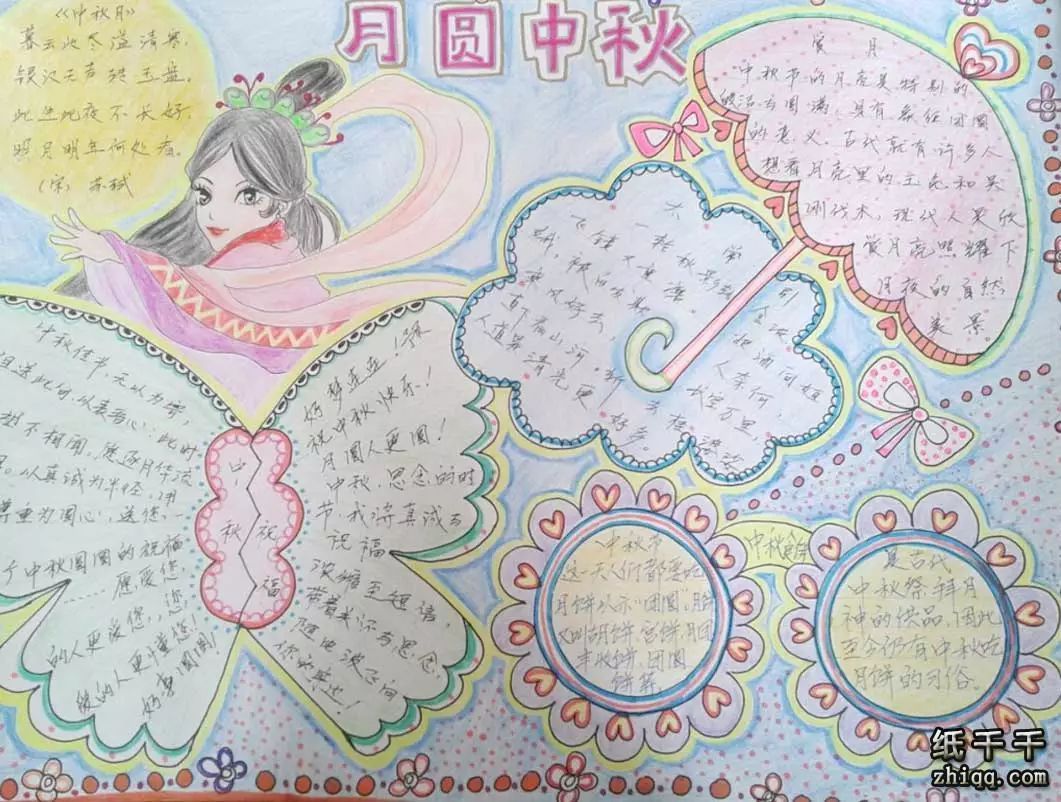 月圆中秋
《中秋月》
暮云收尽溢清寒,
银汉无声转玉盘。
此生此夜不长好,
明月明年何处看。
(宋) 苏轼
赏月
中秋节的月亮是特别的
皎洁与圆满,具有象征团圆
的意义。古代就有许多人
想看月亮里的玉兔和吴
刚伐木,现代人更欣
赏月亮照耀下
月夜的自然
美景
中秋佳节,无以为寄,
且送此句,以表吾心:此时
想不相闻,愿逐月华流
。以真诚为半径,用
尊重为圆心,送您
个中秋圆圆的祝福
愿爱您
的人更爱您,
懂您!
好事圆圆!
中秋
祝福
好梦连连!
祝中秋快乐!
月圆人更圆!
中秋,思念的时
节,我将真诚与
祝福
浓缩至短语,
带着关怀与思念,
随电波飞向
你的身边!
一轮
秋影转
金波
飞镜
把酒问姮
娥
人奈何
乘风好去
长空万里
直下看山河
人道是
清光更
多
中秋节
这一天人们都要吃
月饼以示“团圆”。月饼
又叫胡饼、宫饼、月团
丰收饼、团圆
饼等
中秋食俗
是古代
中秋祭拜月
神的供品,因此
至今仍有中秋吃
月饼的习俗。
纸千千
zhiqq.com